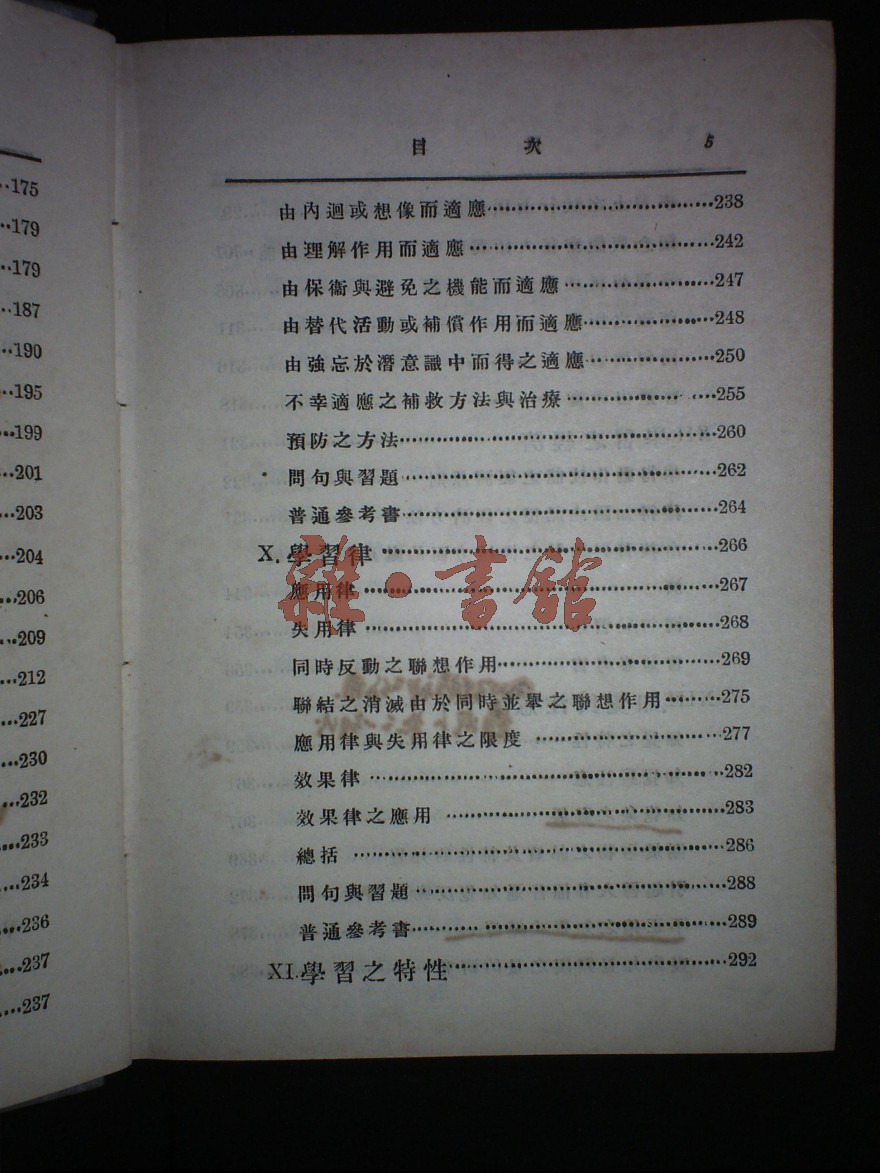 175
179
179
187
190
195
199
201
203
204
206
209
212
227
230
232
233
234
236
237
237
目 次 5
由內迴或想像而適應 238
由理解作用而適應 242
由保衞與避免之機能而適應 247
由替代活動或補償作用而適應 248
由強忘於潛意識中而得之適應 250
不幸適應之補救方法與治療 255
預防之方法 260
問句與習題 262
普通參考書 264
X. 學習律 266
應用律 267
失用律 268
同時反動之聯想作用 269
聯結之消滅由於同時並舉之聯想作用 275
應用律與失用律之限度 277
效果律 282
效果律之應用 283
總括 286
問句與習題 288
普通參考書 289
XI. 學習之特性 292
雜·書館